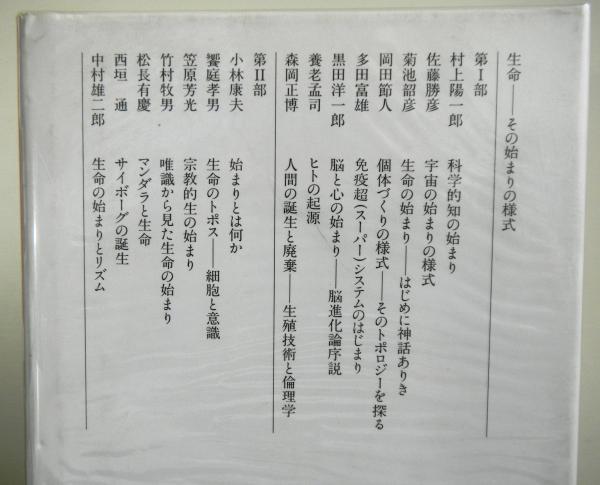 生命——その始まりの様式
第Ⅰ部
村上陽一郎 科学的知の始まり
佐藤勝彦 宇宙の始まりの様式
菊池韶彦 生命の始まり——はじめに神話ありき
岡田節人 個体づくりの様式——そのトポロジーを探る
多田富雄 免疫超(スーパー)システムのはじまり
黒田洋一郎 脳と心の始まり——脳進化論序説
養老孟司 ヒトの起源
森岡正博 人間の誕生と廃棄——生殖技術と倫理学
第Ⅱ部
小林康夫 始まりとは何か
饗庭孝男 生命のトポス——細胞と意識
笠原芳光 宗教的生の始まり
竹村牧男 唯識から見た生命の始まり
松長有慶 マンダラと生命
西垣 通 サイボーグの誕生
中村雄二郎 生命の始まりとリズム